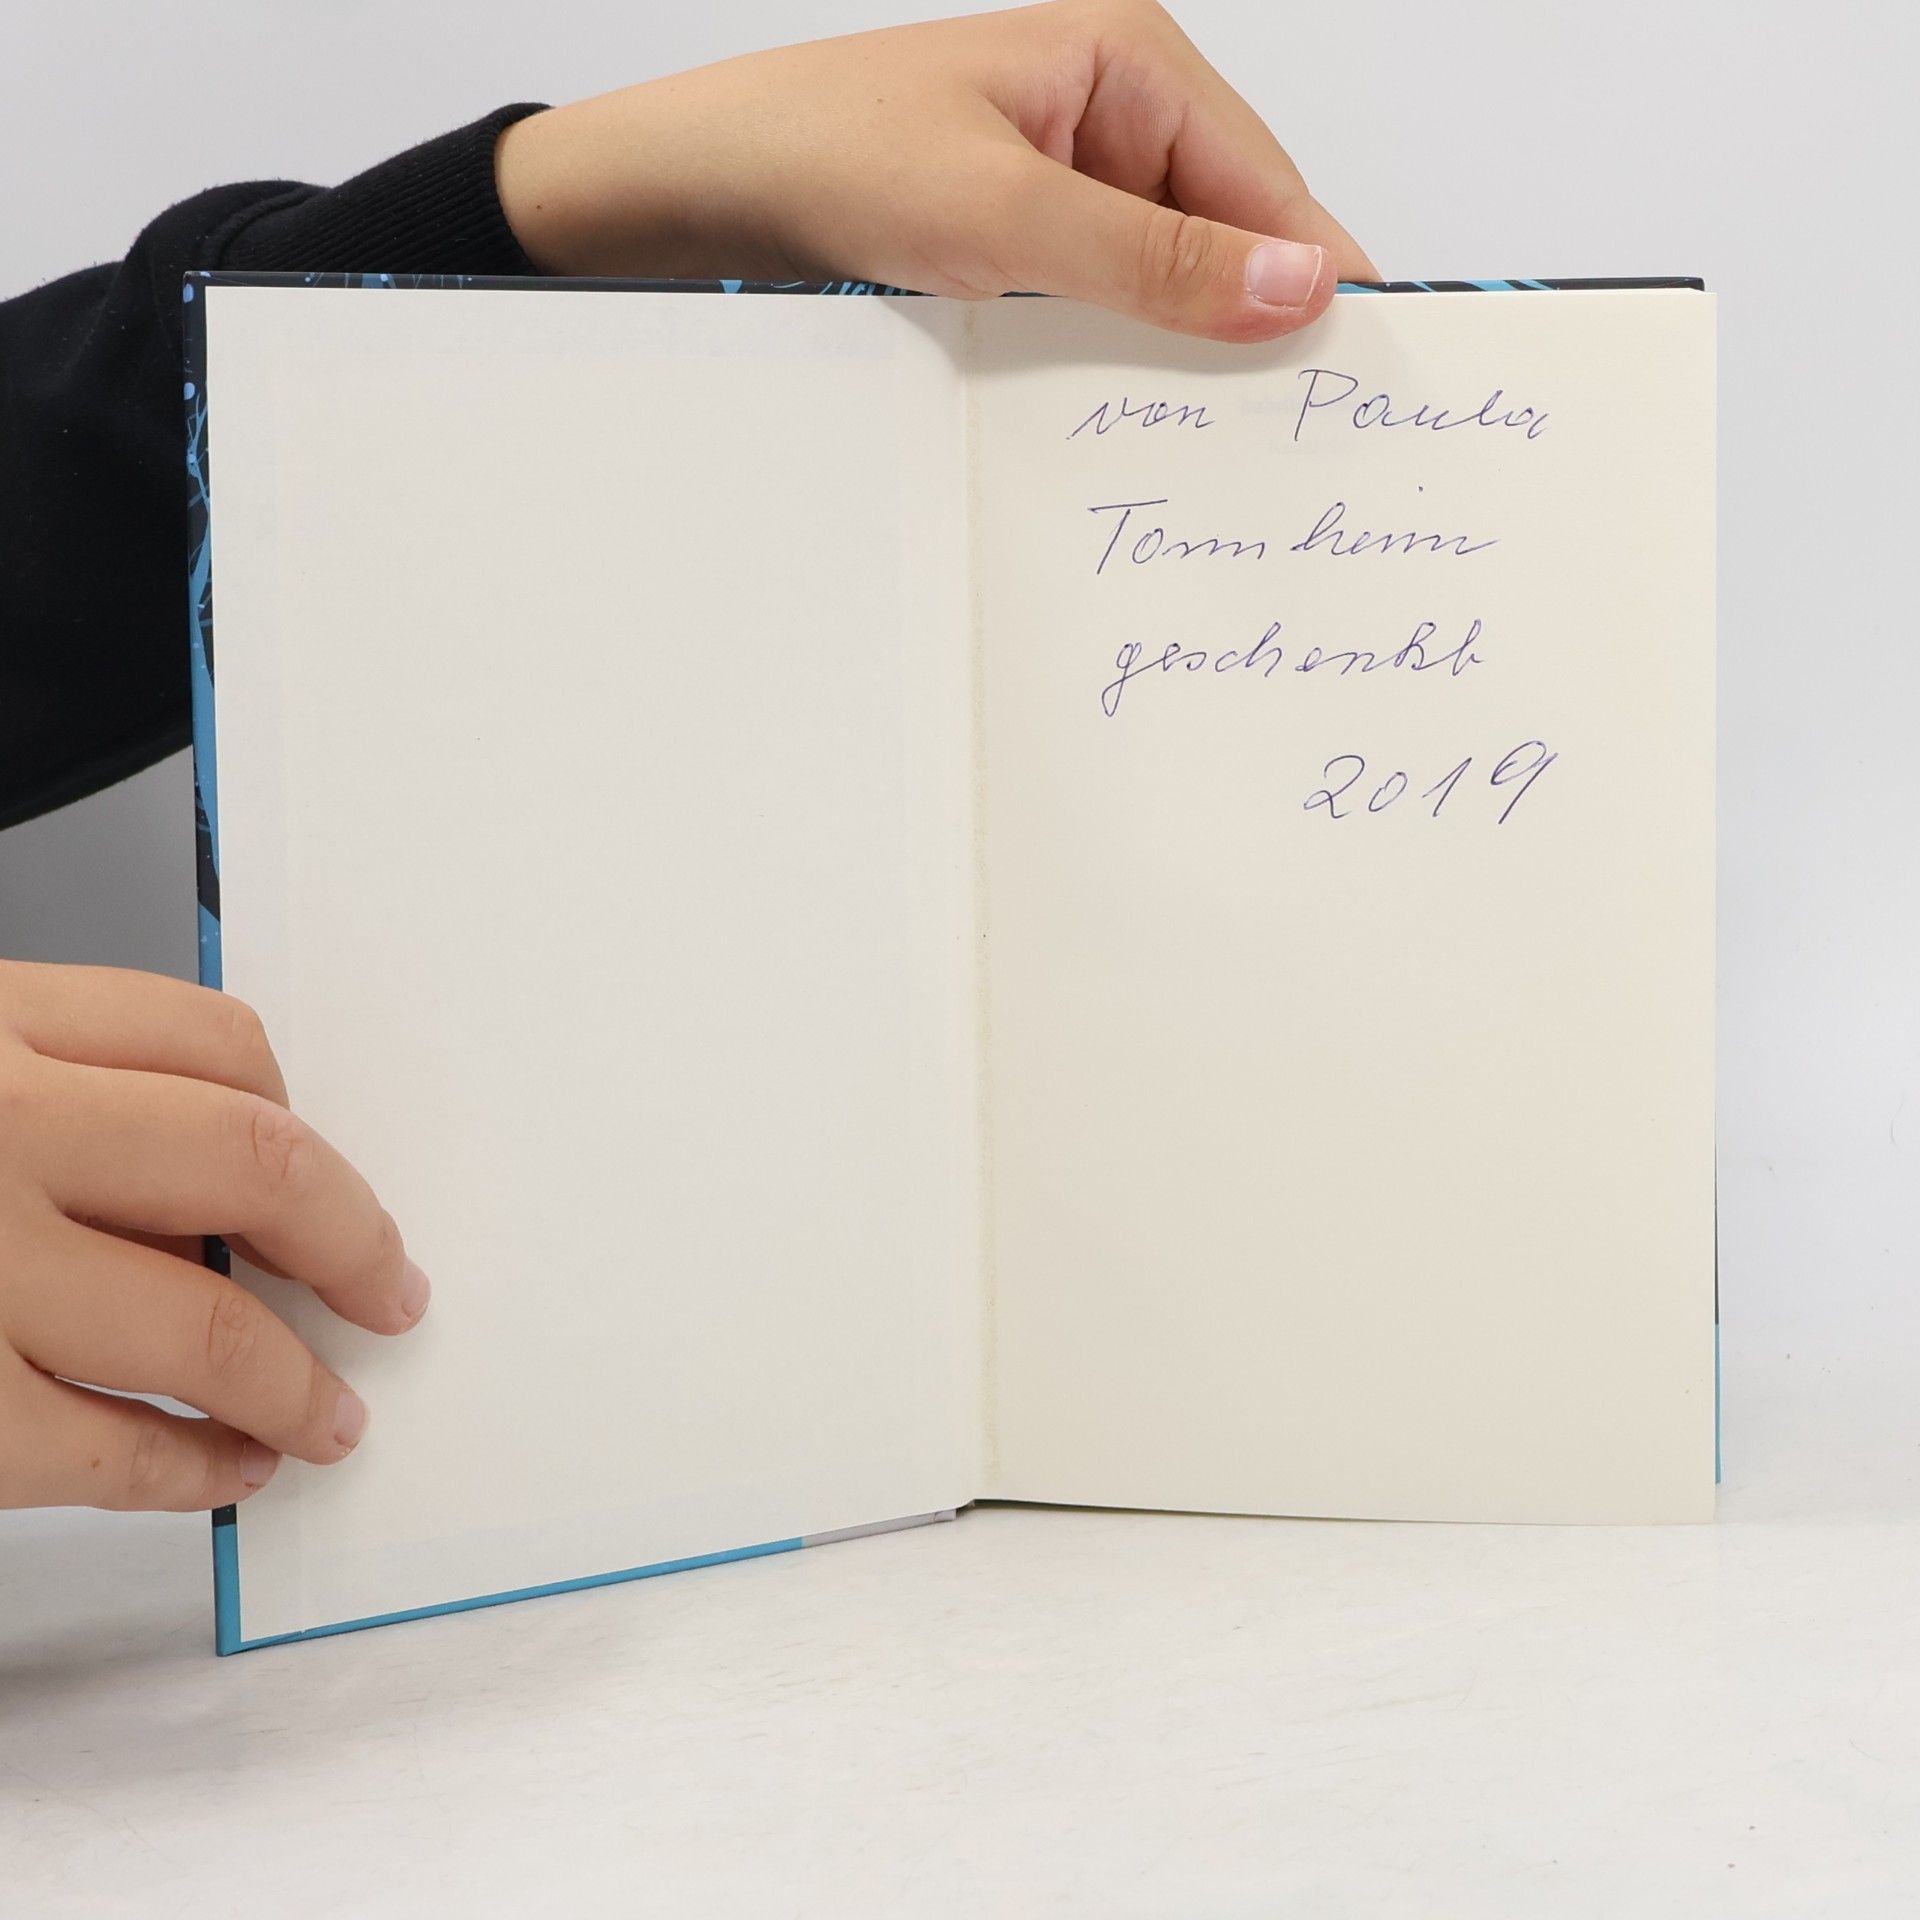 von Paula
Tonnheim
geschenkt
2019